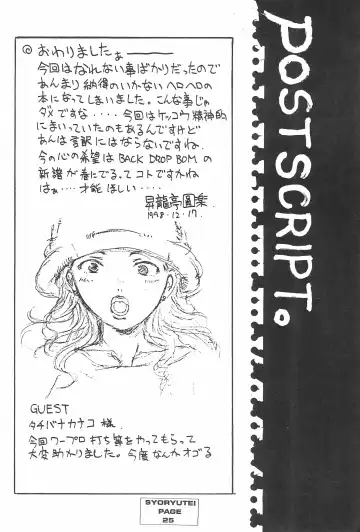 POSTSCRIPT。
◎ おわりましたぁ———
今回はなれない事ばかりだったので
あんまり納得のいかないヘロヘロの
本になってしまいました。こんな事じゃ
ダメですな・・・・今回はケッコウ精神的
にまいっていたのもあるんですけど
あんま言訳にはならないですね。
今の心の希望は BACK DROP BOM の
新譜が春にでるってコトですかね
はぁ・・・・才能ほしい・・・・
昇龍亭圓楽
1998・12・17.
GUEST
タチバナカナコ 様.
今回ワープロ打ち等をやってもらって
大変助かりました。今度なんかオゴる
SYORYUTEI
PAGE
25